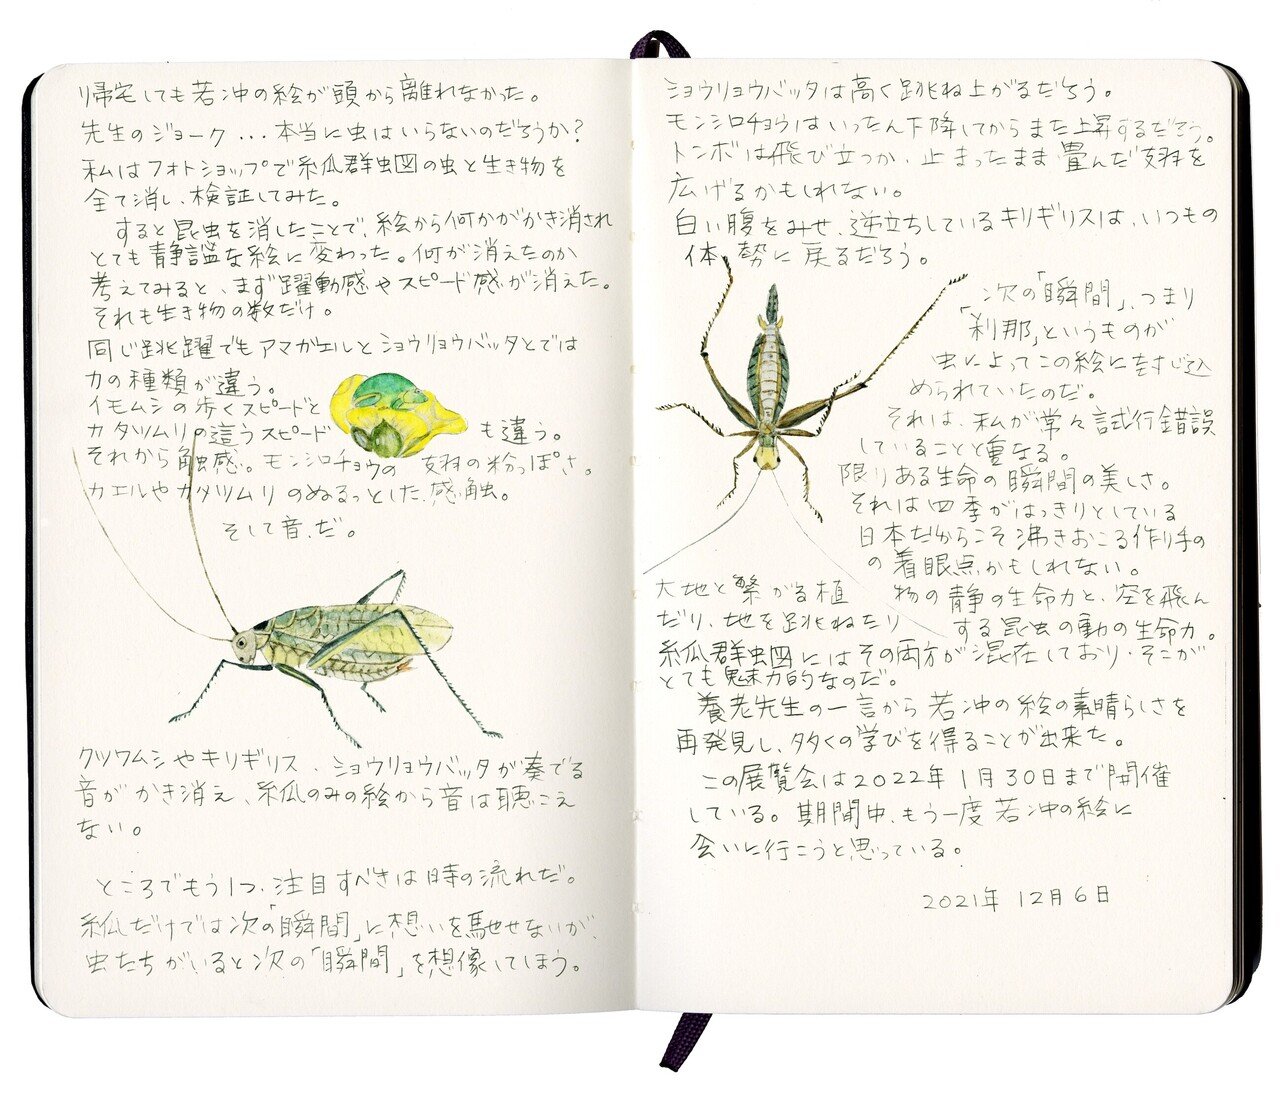 帰宅しても若冲の絵が頭から離れなかった。
先生のジョーク...本当に虫はいらないのだろうか?
私はフォトショップで糸瓜群虫図の虫と生き物を
全て消し、検証してみた。
すると昆虫を消したことで、絵から何かがかき消され
とても静謐な絵に変わった。何が消えたのか
考えてみると、まず躍動感やスピード感が消えた。
それも生き物の数だけ。
同じ跳躍でもアマガエルとショウリョウバッタとでは
力の種類が違う。
イモムシの歩くスピードと
カタツムリの這うスピード も違う。
それから触感。モンシロチョウの 翅の粉っぽさ。
カエルやカタツムリのぬるっとした感触。
そして音だ。
クツワムシやキリギリス、ショウリョウバッタが奏でる
音がかき消え、糸瓜のみの絵から音は聴こえ
ない。
ところでもう1つ、注目すべきは時の流れだ。
糸瓜だけでは次の「瞬間」に想いを馳せないが、
虫たちがいると次の「瞬間」を想像してしまう。
ショウリョウバッタは高く跳ね上がるだろう。
モンシロチョウはいったん下降してからまた上昇するだろう。
トンボは飛び立つか、止まったまま畳んだ翅を
広げるかもしれない。
白い腹をみせ、逆立ちしているキリギリスは、いつもの
体勢に戻るだろう。
「次の「瞬間」、つまり
「刹那」というものが
虫によってこの絵に封じ込
められていたのだ。
それは私が常々試行錯誤
していることと重なる。
限りある生命の瞬間の美しさ。
それは四季がはっきりとしている
日本だからこそ沸きおこる作り手の
の着眼点かもしれない。
大地と繋がる植 物の静の生命力と、空を飛ん
だり、地を跳ねたり する昆虫の動の生命力。
糸瓜群虫図にはその両方が混在しており、そこが
とても魅力的なのだ。
養老先生の一言から若冲の絵の素晴らしさを
再発見し、多くの学びを得ることが出来た。
この展覧会は2022年1月30日まで開催
している。期間中、もう一度若冲の絵に
会いに行こうと思っている。
2021年12月6日